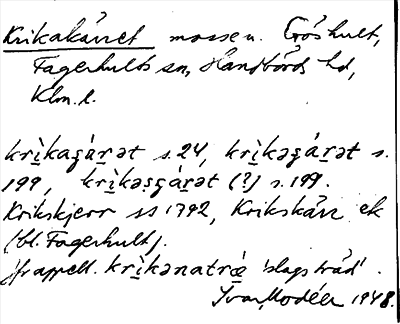 Krikakärret mosse n. Cröshult,
Fagerhults sn, Handbörds hd,
Klm. l.
krìkagáṟət s. 24, krìkəgáṟət s.
199, krìkəsgáṟət (?) s. 199.
Krikskjerr ss 1792, Krikskärr ek
(bl. Fagerhult).
jfr appell. krìkənatrǽ 'slags träd'.
Ivar Modéer 1948.